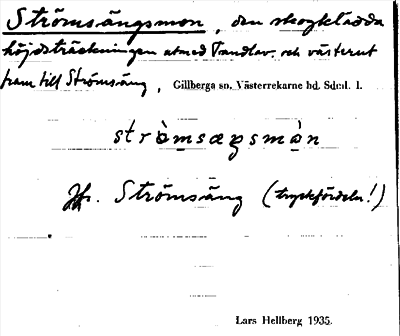 Strömsängsmon, den skogklädda
höjdsträckningen utmed Tandlav. och västerut
fram till Strömsäng, Gillberga sn. Västerrekarne hd. Sdml. l.
strömsæŋsmòn
Jfr. Strömsäng (tryckfördeln!)
Lars Hellberg 1935.